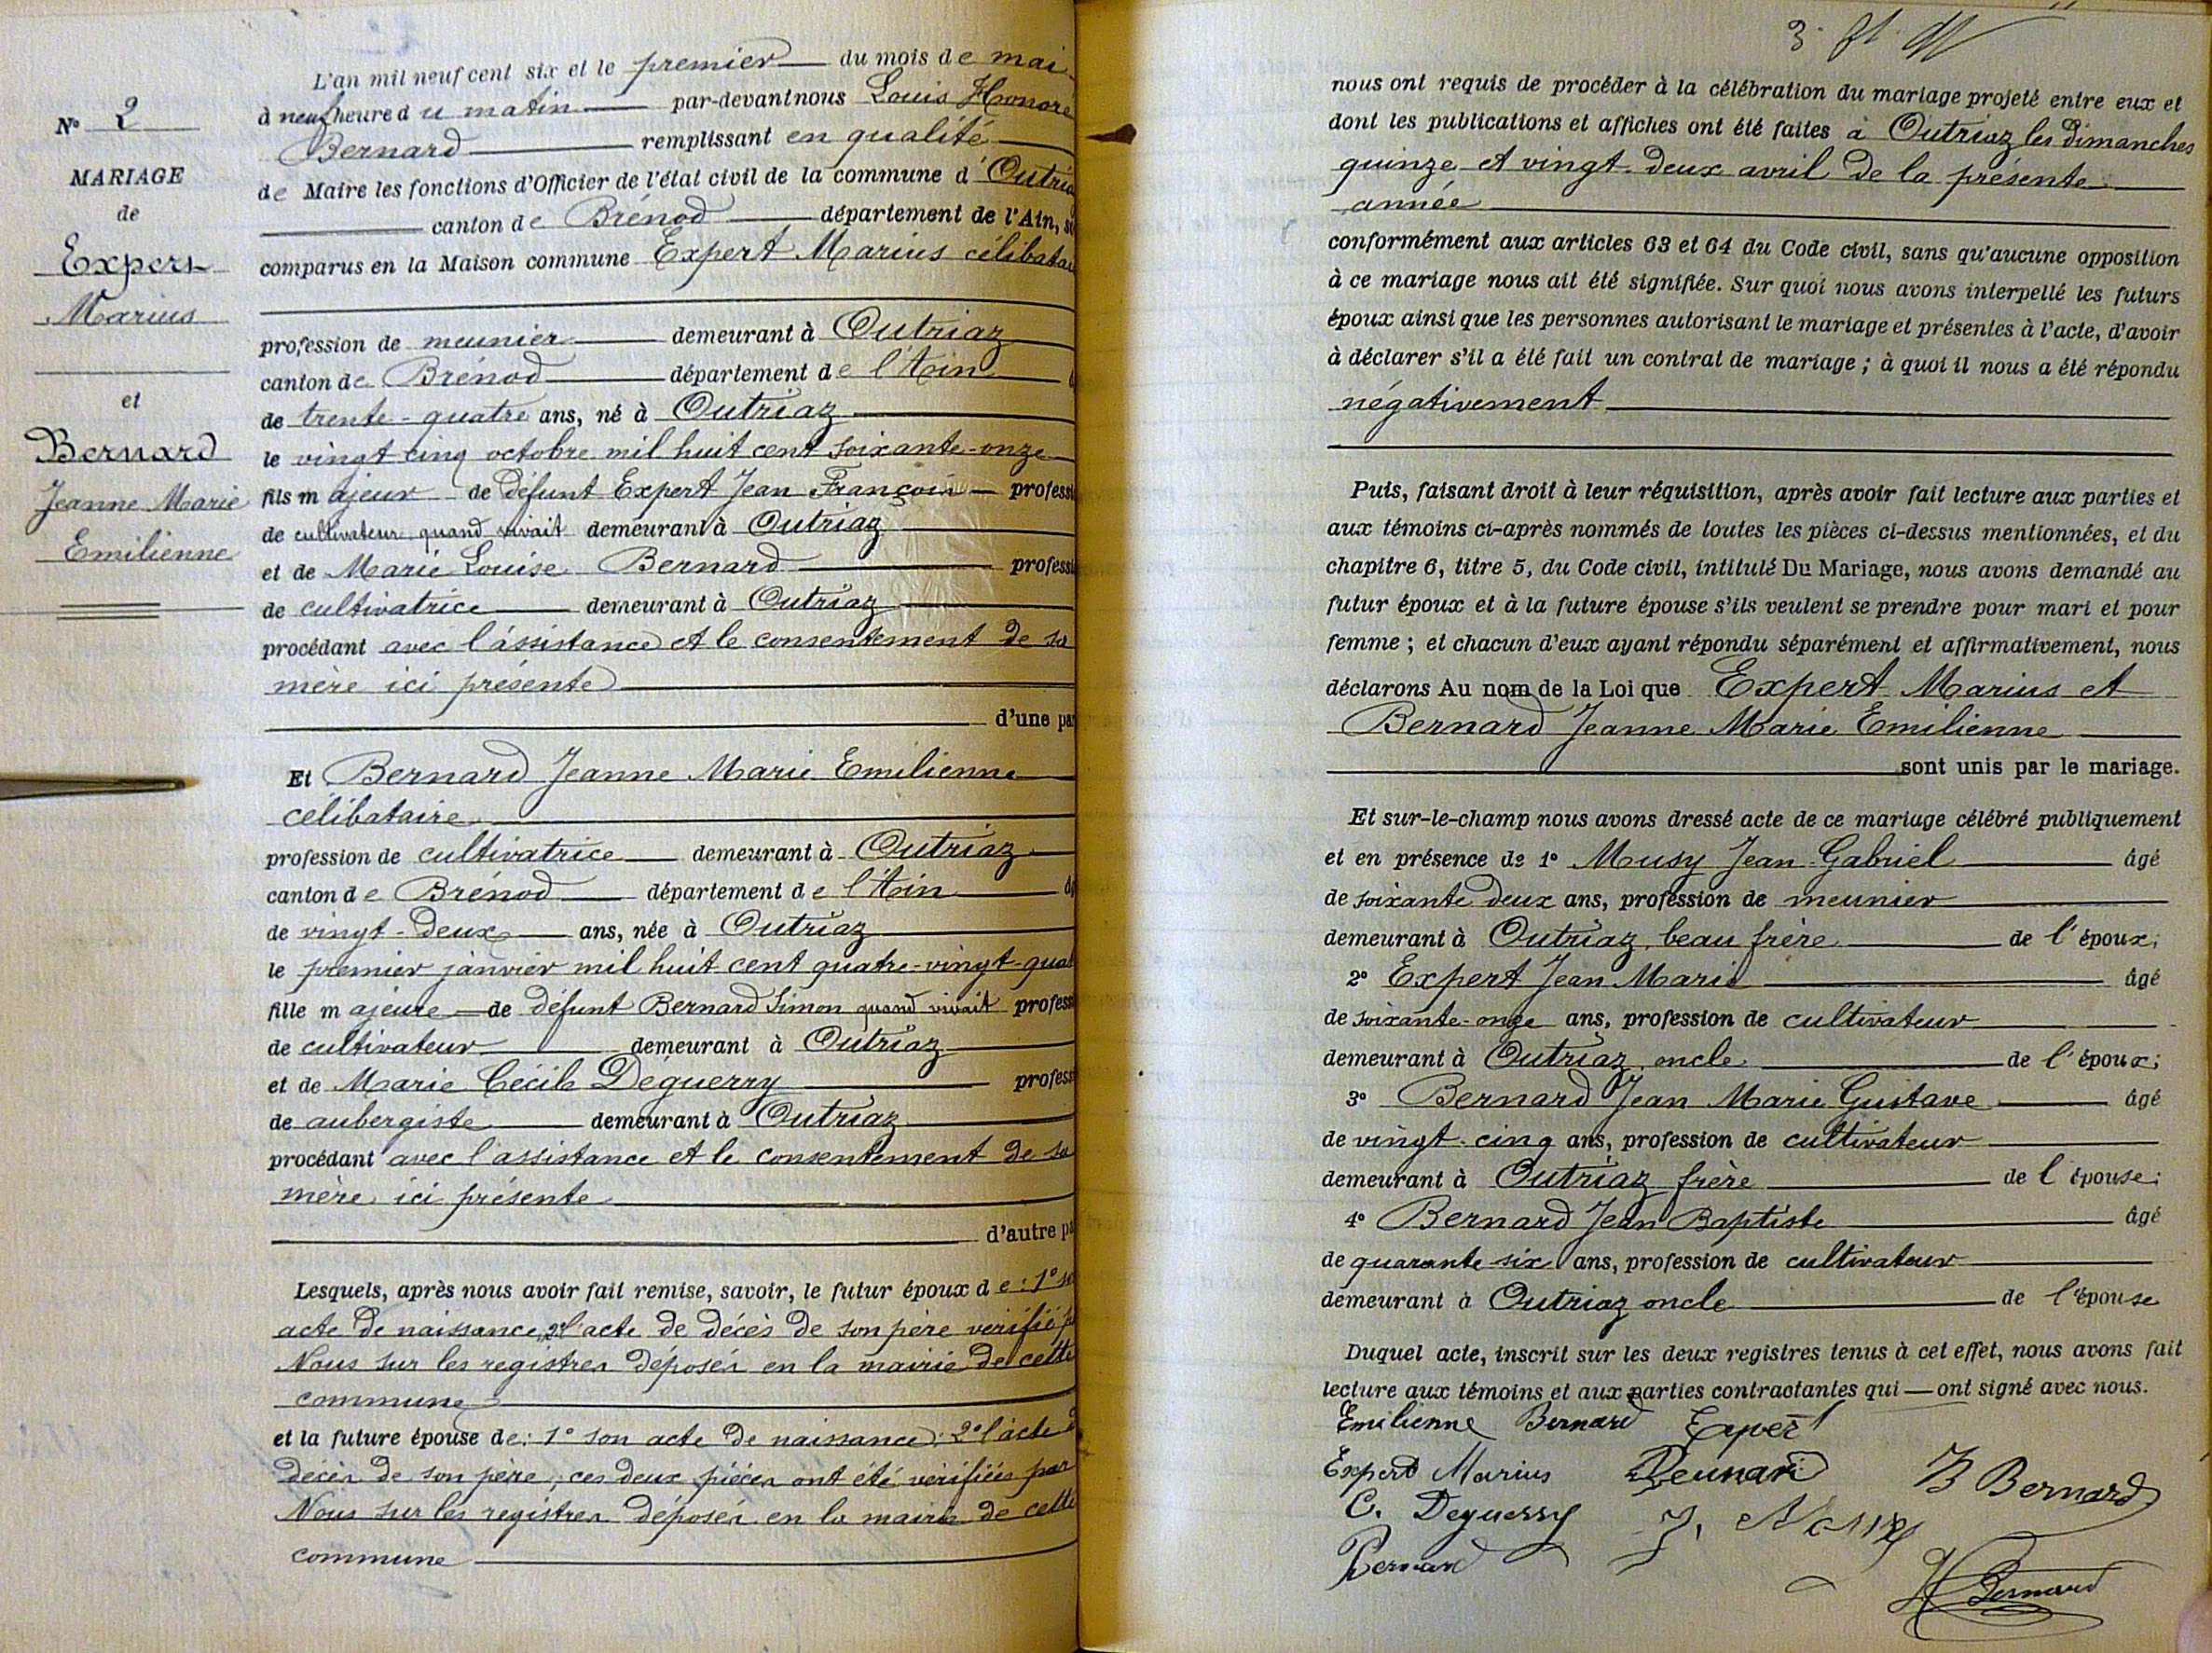 N° 2
MARIAGE
de
Expert
Marius
et
Bernard
Jeanne Marie
Emilienne
L'an mil neuf cent six et le premier du mois de mai
à neuf heure du matin par-devant nous Louis Honoré
Bernard remplissant en qualité
de Maire les fonctions d'Officier de l'état civil de la commune d'Outria
canton de Brénod département de l'Ain, so
comparus en la Maison commune Expert Marius célibatai
profession de meunier demeurant à Outriaz
canton de Brénod département de l'Ain
de trente-quatre ans, né à Outriaz
le vingt cinq octobre mil huit cent soixante-onze
fils majeur de défunt Expert Jean François professi
de cultivateur quand vivait demeurant à Outriaz
et de Marie Louise Bernard professi
de cultivatrice demeurant à Outriaz
procédant avec l'assistance et le consentement de sa
mère ici présente
d'une pa
Et Bernard Jeanne Marie Emilienne
célibataire
profession de cultivatrice demeurant à Outriaz
canton de Brénod département de l'Ain
de vingt-deux ans, née à Outriaz
le premier janvier mil huit cent quatre-vingt-quat
fille majeure de défunt Bernard Simon quand vivait profess
de cultivateur demeurant à Outriaz
et de Marie Cécile Déguerry profess
de aubergiste demeurant à Outriaz
procédant avec l'assistance et le consentement de sa
mère ici présente
d'autre pa
Lesquels, après nous avoir fait remise, savoir, le futur époux de : 1° so
acte de naissance, 2° l'acte de décès de son père vérifié p
Nous sur les registres déposés en la mairie de cette
commune
et la future épouse de : 1° son acte de naissance ; 2° l'acte d
décès de son père, ces deux pièces ont été vérifiées par
Nous sur les registres déposés en la mairie de cette
commune
3.
nous ont requis de procéder à la célébration du mariage projeté entre eux et
dont les publications et affiches ont été faites à Outriaz les dimanches
quinze et vingt-deux avril de la présente
année
conformément aux articles 63 et 64 du Code civil, sans qu'aucune opposition
à ce mariage nous ait été signifiée. Sur quoi nous avons interpellé les futurs
époux ainsi que les personnes autorisant le mariage et présentes à l'acte, d'avoir
à déclarer s'il a été fait un contrat de mariage ; à quoi il nous a été répondu
négativement
Puis, faisant droit à leur réquisition, après avoir fait lecture aux parties et
aux témoins ci-après nommés de toutes les pièces ci-dessus mentionnées, et du
chapitre 6, titre 5, du Code civil, intitulé Du Mariage, nous avons demandé au
futur époux et à la future épouse s'ils veulent se prendre pour mari et pour
femme ; et chacun d'eux ayant répondu séparément et affirmativement, nous
déclarons Au nom de la Loi que Expert Marius et
Bernard Jeanne Marie Emilienne
sont unis par le mariage.
Et sur-le-champ nous avons dressé acte de ce mariage célébré publiquement
et en présence de 1° Musy Jean-Gabriel âgé
de soixante deux ans, profession de meunier
demeurant à Outriaz, beau frère de l'époux;
2° Expert Jean Marie âgé
de soixante-onze ans, profession de cultivateur
demeurant à Outriaz, oncle de l'époux;
3° Bernard Jean Marie Gustave âgé
de vingt-cinq ans, profession de cultivateur
demeurant à Outriaz frère de l'épouse;
4° Bernard Jean Baptiste âgé
de quarante six ans, profession de cultivateur
demeurant à Outriaz oncle de l'épouse
Duquel acte, inscrit sur les deux registres tenus à cet effet, nous avons fait
lecture aux témoins et aux parties contractantes qui — ont signé avec nous.
Emilienne Bernard Expert
Expert Marius Bernard B Bernard
C. Deguerry J. Musy
Bernard
H Bernard